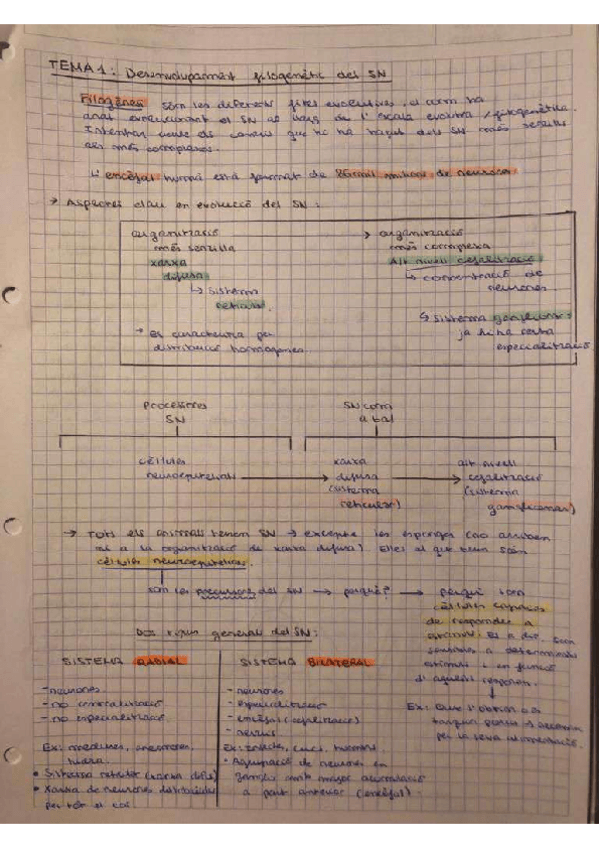 TEMA 1: Desenvolupament filogenètic del SN
Filogènesi: són les diferents fites evolutives, i com ha
anat evolucionant el SN al llarg de l'escala evolutiva / filogenètica.
Intentar veure els canvis que hi ha hagut dels SN més senzills
als més complexes.
L'encèfal humà està format de 86 mil milions de neurones
→ Aspectes clau en evolució del SN:
organització
més senzilla
xarxa
difusa
↳ sistema
reticular
* es caracteritza per
distribució homogènea.
→ organització
més complexa
Alt nivell cefalització
↳ concentració de
neurones
↳ sistema ganglionar:
ja hi ha certa
especialització
Precursores
SN
SN com
a tal
cèl·lules
neuroepitelials
→ xarxa
difusa
(sistema
reticular)
→ alt nivell
cefalització
(sistema
ganglionar)
→ Tots els animals tenen SN → excepte les esponges (no arriben
ni a la organització de xarxa difusa). Elles el que tenen són
cèl·lules neuroepitelials.
són les precursores del SN → perquè? → perquè són
cèl·lules capaces
de respondre a
estímuls. És a dir, són
sensibles a determinats
estímuls i en funció
d'aquests responen.
Dos tipus generals del SN:
SISTEMA RADIAL
- neurones
- no centralització
- no especialització
Ex: meduses, anemones,
hidra.
• Sistema reticular (xarxa difusa)
• Xarxa de neurones distribuïdes
per tot el cos.
SISTEMA BILATERAL
- neurones
- especialització
- encèfal (cefalització)
- nervis
Ex: insecte, cucs, humans.
• Agrupació de neurones en
ganglis amb major acumulació
a part anterior (encèfal).
Ex: que l'obrin o es
tanquin
per la seva alimentació.